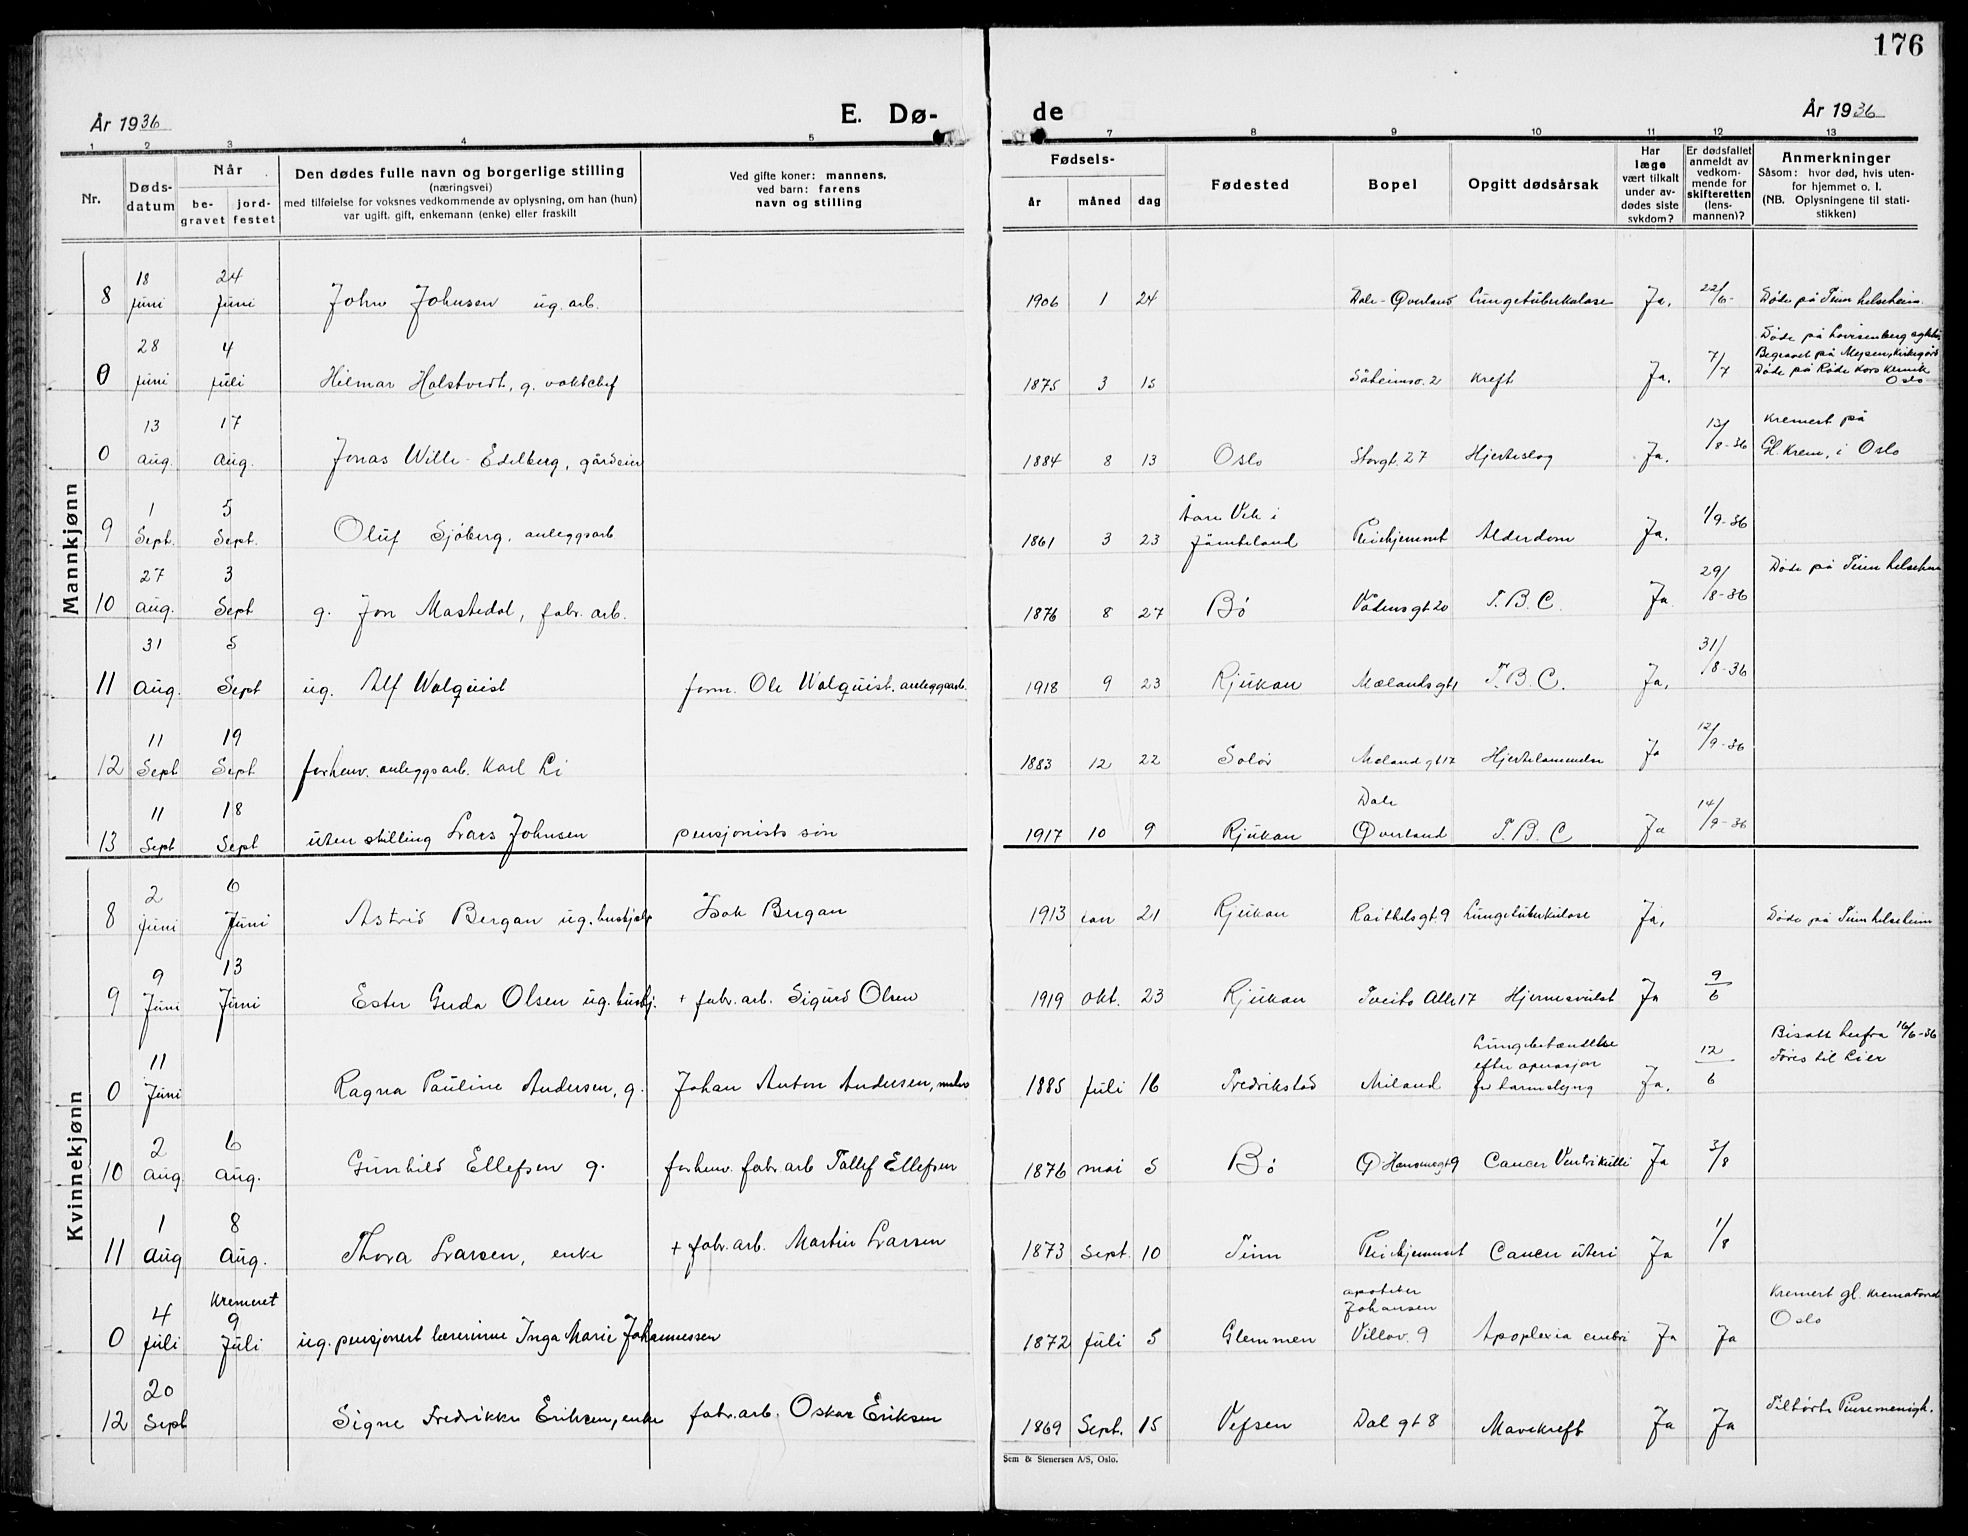 176
År 1936 E. Dø- de År 1936
1 2 3 4 5 7 8 9 10 11 12 13
Nr. Døds-datum Når be-gravet jord-festet Den dødes fulle navn og borgerlige stilling (næringsvei) med tilføielse for voksnes vedkommende av oplysning, om han (hun) var ugift. gift, enkemann (enke) eller fraskilt Ved gifte koner: mannens, ved barn: farens navn og stilling Fødsels- år måned dag Fødested Bopel Opgitt dødsårsak Har læge vært tilkalt under av-dødes siste sykdom? Er dødsfallet anmeldt av vedkom-mende for skifteretten (lens-mannen)? Anmerkninger Såsom: hvor død, hvis uten-for hjemmet o. l. (NB. Oplysningene til stati-stikken)
Mannkjønn
8 18 Juni 24 Juni John Johnsen ug. arb. 1906 1 24 Dale-Øverland Lungetuberkulose Ja. 22/6- Døde på Tinn helseheim.
0 28 Juni 4 Juli Hilmar Holstvedt, g. vaktchef 1875 3 15 Såheimsv. 2 Kreft Ja. 7/7 Døde på Lovisenberg Begravet på Mysen kirkegård Døde på Røde Kors klinikk Oslo
0 13 Aug. 17 Aug. Jonas Wille-Edelberg, gårdeier 1884 8 13 Oslo Storgt. 27 Hjerteslag Ja. 13/8-36 Kremert på Gl. Krem, i Oslo
9 1 Sept. 5 Sept. Oluf Sjøberg, anleggsarb 1861 3 23 i Jämteland Pleiehjemmet Alderdom Ja. 1/9-36
10 27 Aug. 3 Sept g. Jon Mastedal, fabr. arb. 1876 8 27 Bø 20 T.B.C. Ja 29/8-36 Døde på Tinn helseheim
11 31 Aug. 5 Sept ug. Alf Walquist form. Ole Walquist, anleggsarb. 1918 9 23 Rjukan Mælandsgt 1 T.B.C. Ja. 31/8-36
12 11 Sept 19 Sept. forhenv. anleggsarb. Karl Li 1883 12 22 Solør Mælandsgt 17 Hjertelammelse Ja 12/9-36
13 11 Sept 18 Sept uten stilling Lars Johnsen pensjonists søn 1917 10 9 Rjukan Dale Øverland T.B.C Ja 14/9-36
Kvinnekjønn
8 2 Juni 6 Juni Astrid Bergan ug. hushjelp Isak Bergan 1913 jan 21 Rjukan Raithelsgt. 9 Lungetuberkulose Ja. Døde på Tinn helseheim
9 9 Juni 13 Juni Ester Guda Olsen ug. hushj. + fabr. arb. Sigurd Olsen 1919 okt. 23 Rjukan Tveito Alle 17 Hjernesvulst Ja 9/6
0 11 Juni Ragna Pauline Andersen, g. Johan Anton Andersen, 1885 Juli 16 Fredrikstad Miland Lungebetændelse efter operasjon for tarmslyng Ja. 12/6 Bisatt herfra 16/6-36 Føres til Lier
10 2 Aug 6 Aug. Gunhild Ellefsen g. forhenv. fabr. arb Tallef Ellefsen 1876 mai 5 Bø O Hansensgt 9 Cancer Ventrikulli Ja 3/8
11 1 Aug 8 Aug. Thora Larsen, enke + fabr. arb. Martin Larsen 1873 Sept. 10 Tinn Pleiehjemmet Cancer uteri Ja 1/8
0 4 Juli Kremeret 9 Juli ug. pensjonert lærerinne Inga Marie Johannessen 1872 Juli 5 Glemmen apoteker Johansen Villav. 9 Apoplexia cerebri Ja Ja Kremert gl. Krematoriet Oslo
12 20 Sept Signe Fredrikke Eriksen, enke fabr. arb. Oskar Eriksen 1869 Sept. 15 Vefsen Dal gt 8 Mavekreft Ja Ja Tilhørte Pinsemenigh.
Sem & Stenersen A/S, Oslo.